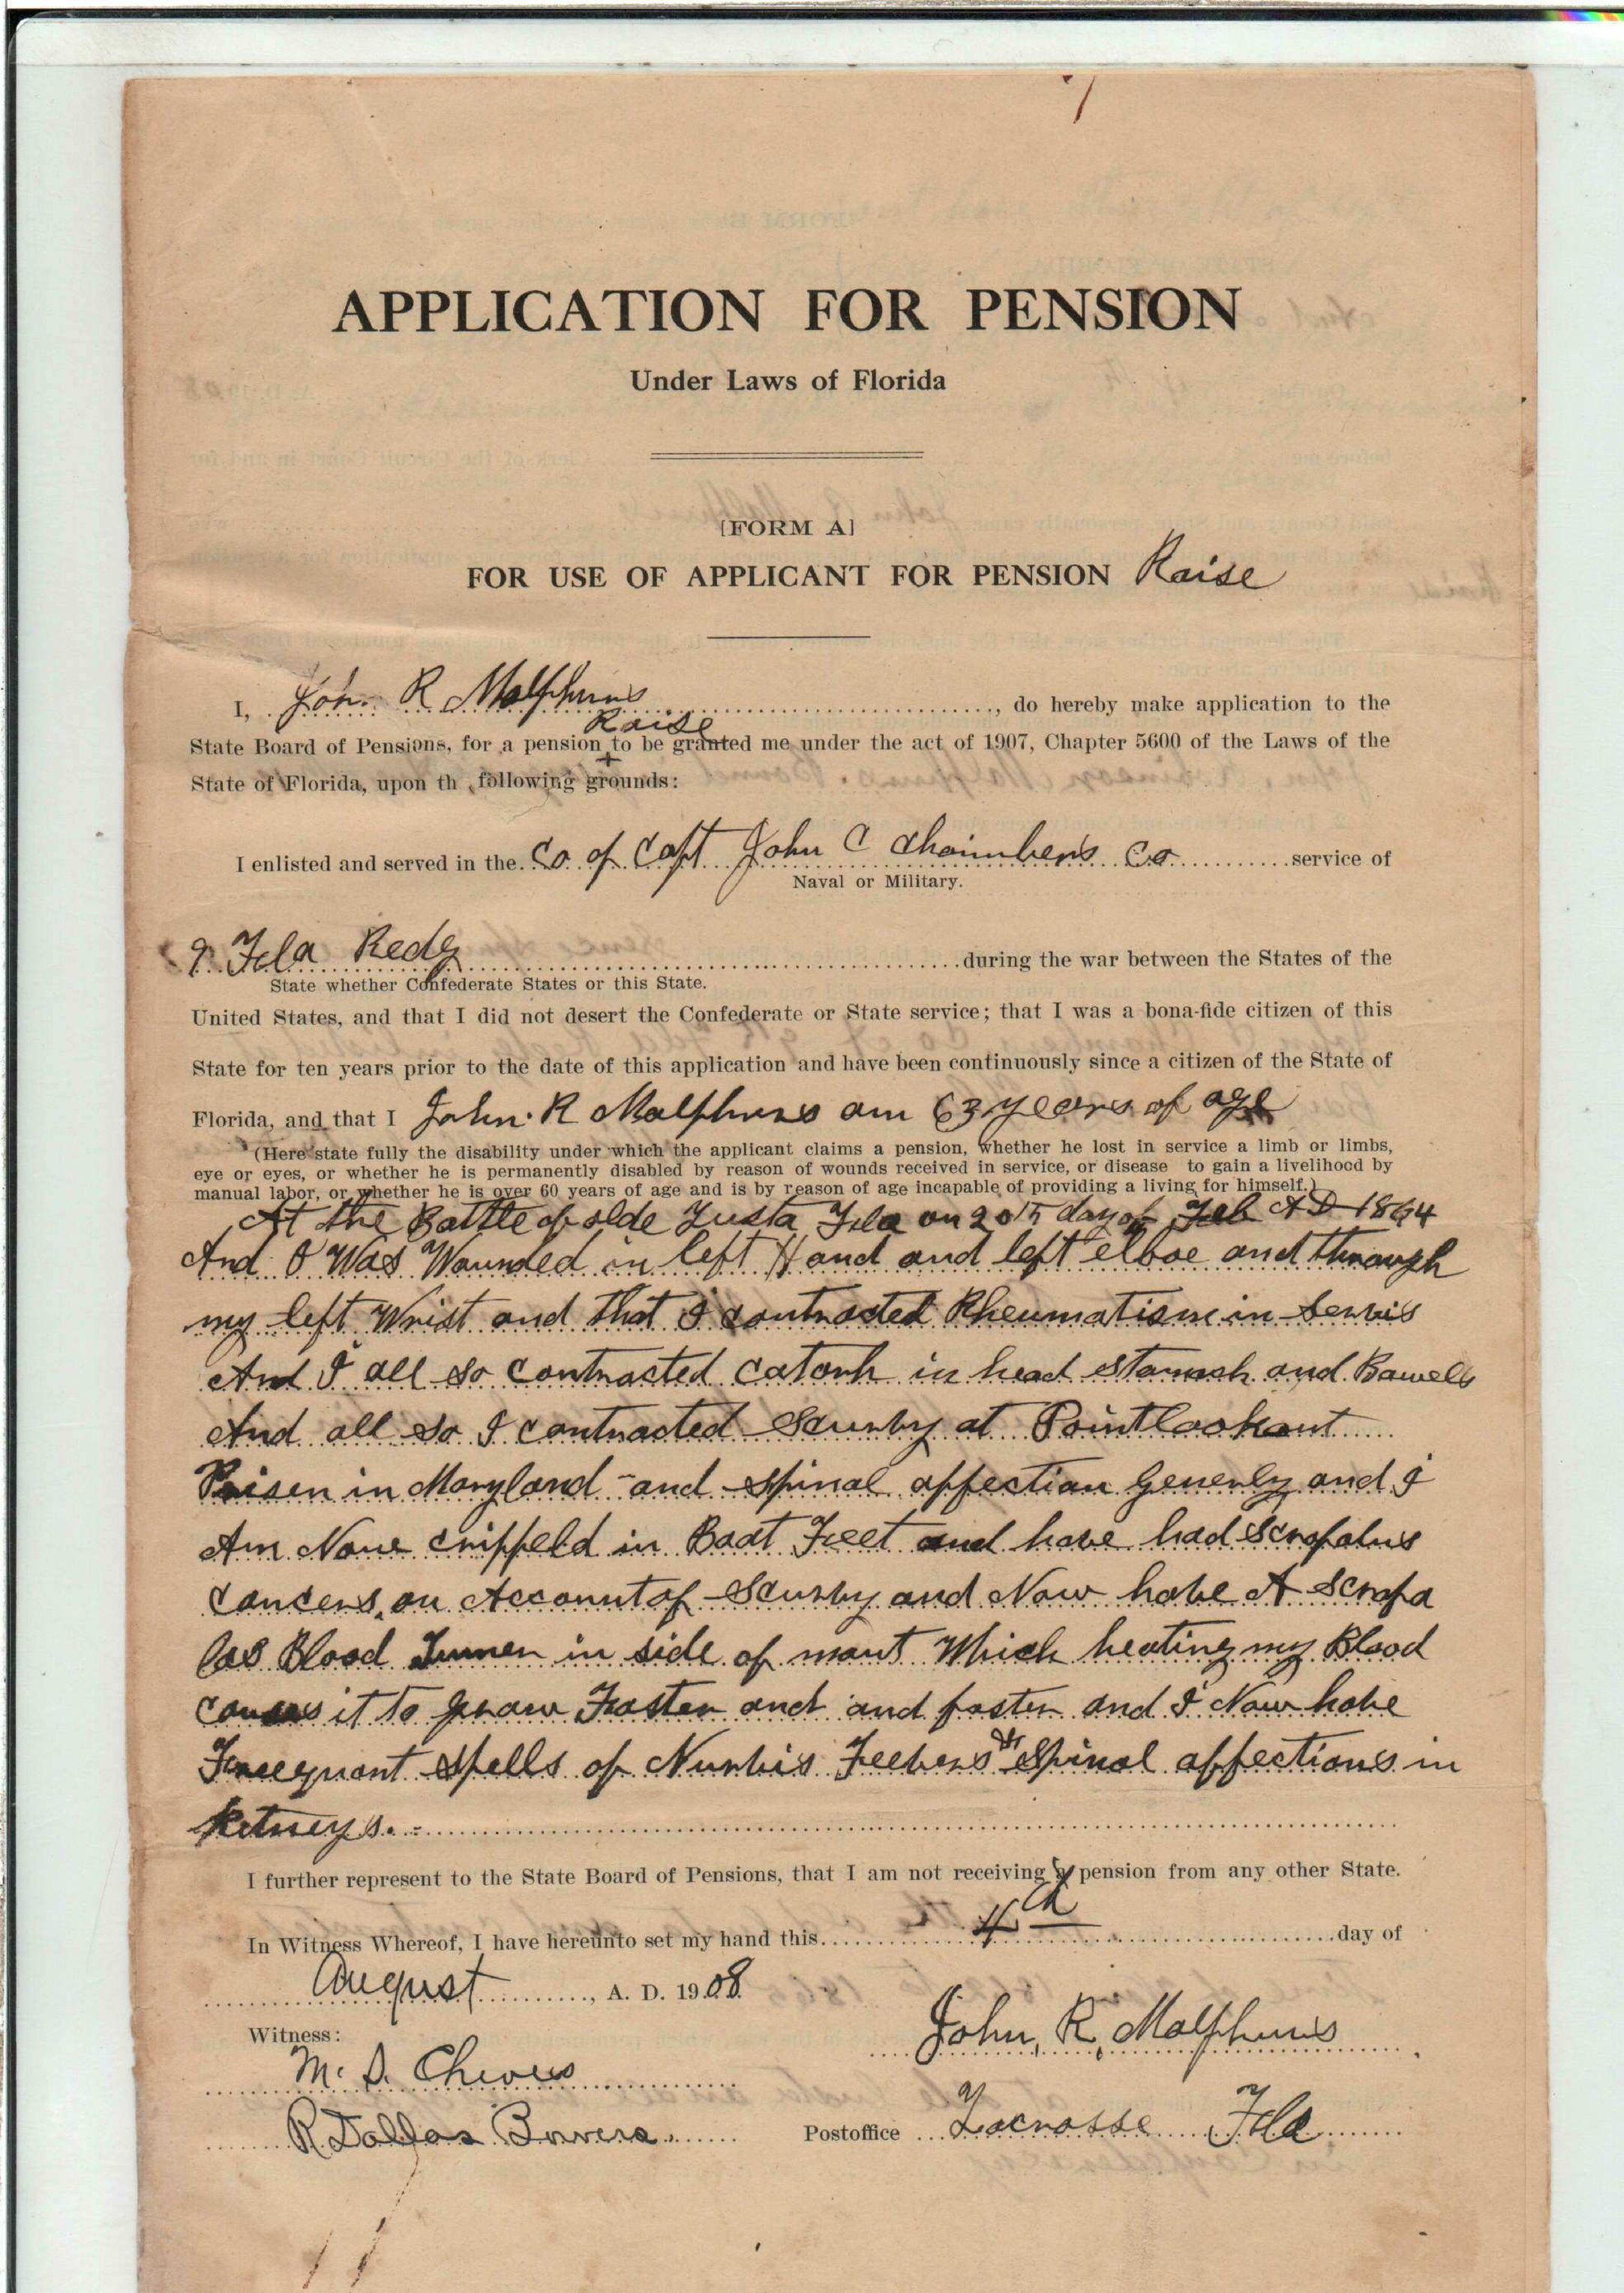 APPLICATION FOR PENSION
Under Laws of Florida
[FORM A]
FOR USE OF APPLICANT FOR PENSION Raise
I, John R Malphurs, do hereby make application to the
Raise
State Board of Pensions, for a pension to be granted me under the act of 1907, Chapter 5600 of the Laws of the
State of Florida, upon th following grounds:
I enlisted and served in the Co of Capt John C Chambers Co service of
Naval or Military.
9 Fla Redg during the war between the States of the
State whether Confederate States or this State.
United States, and that I did not desert the Confederate or State service; that I was a bona-fide citizen of this
State for ten years prior to the date of this application and have been continuously since a citizen of the State of
Florida, and that I John R Malphurs am 63 years of age
(Here state fully the disability under which the applicant claims a pension, whether he lost in service a limb or limbs,
eye or eyes, or whether he is permanently disabled by reason of wounds received in service, or disease to gain a livelihood by
manual labor, or whether he is over 60 years of age and is by reason of age incapable of providing a living for himself.)
At the Battle of olde Lusta Fla on 20th day of Feb AD 1864
And I Was Wounded in left Hand and left elboe and through
my left Wrist and that I contracted Rheumatism in Servis
And I all so contracted catarh in head stamach and Bawells
And all so I contracted Scurvy at Pointlookout
Prisen in Maryland - and spinal affection generly and I
Am Now crippeld in Boat Feet and have had scrofalus
cancers, on Account of Scurvy and Now have A scrofa
las Blood Tumer in side of mout Which heating my Blood
causes it to graw Faster and and faster and I Now have
Freequant spells of Nurvis Feebers & Spinal affections in
Kitneys.
I further represent to the State Board of Pensions, that I am not receiving a pension from any other State.
In Witness Whereof, I have hereunto set my hand this 4th day of
August, A. D. 1908
Witness:
John, R, Malphurs
M. D. Cheves
R. Dallas Bowers
Postoffice Lacrosse Fla